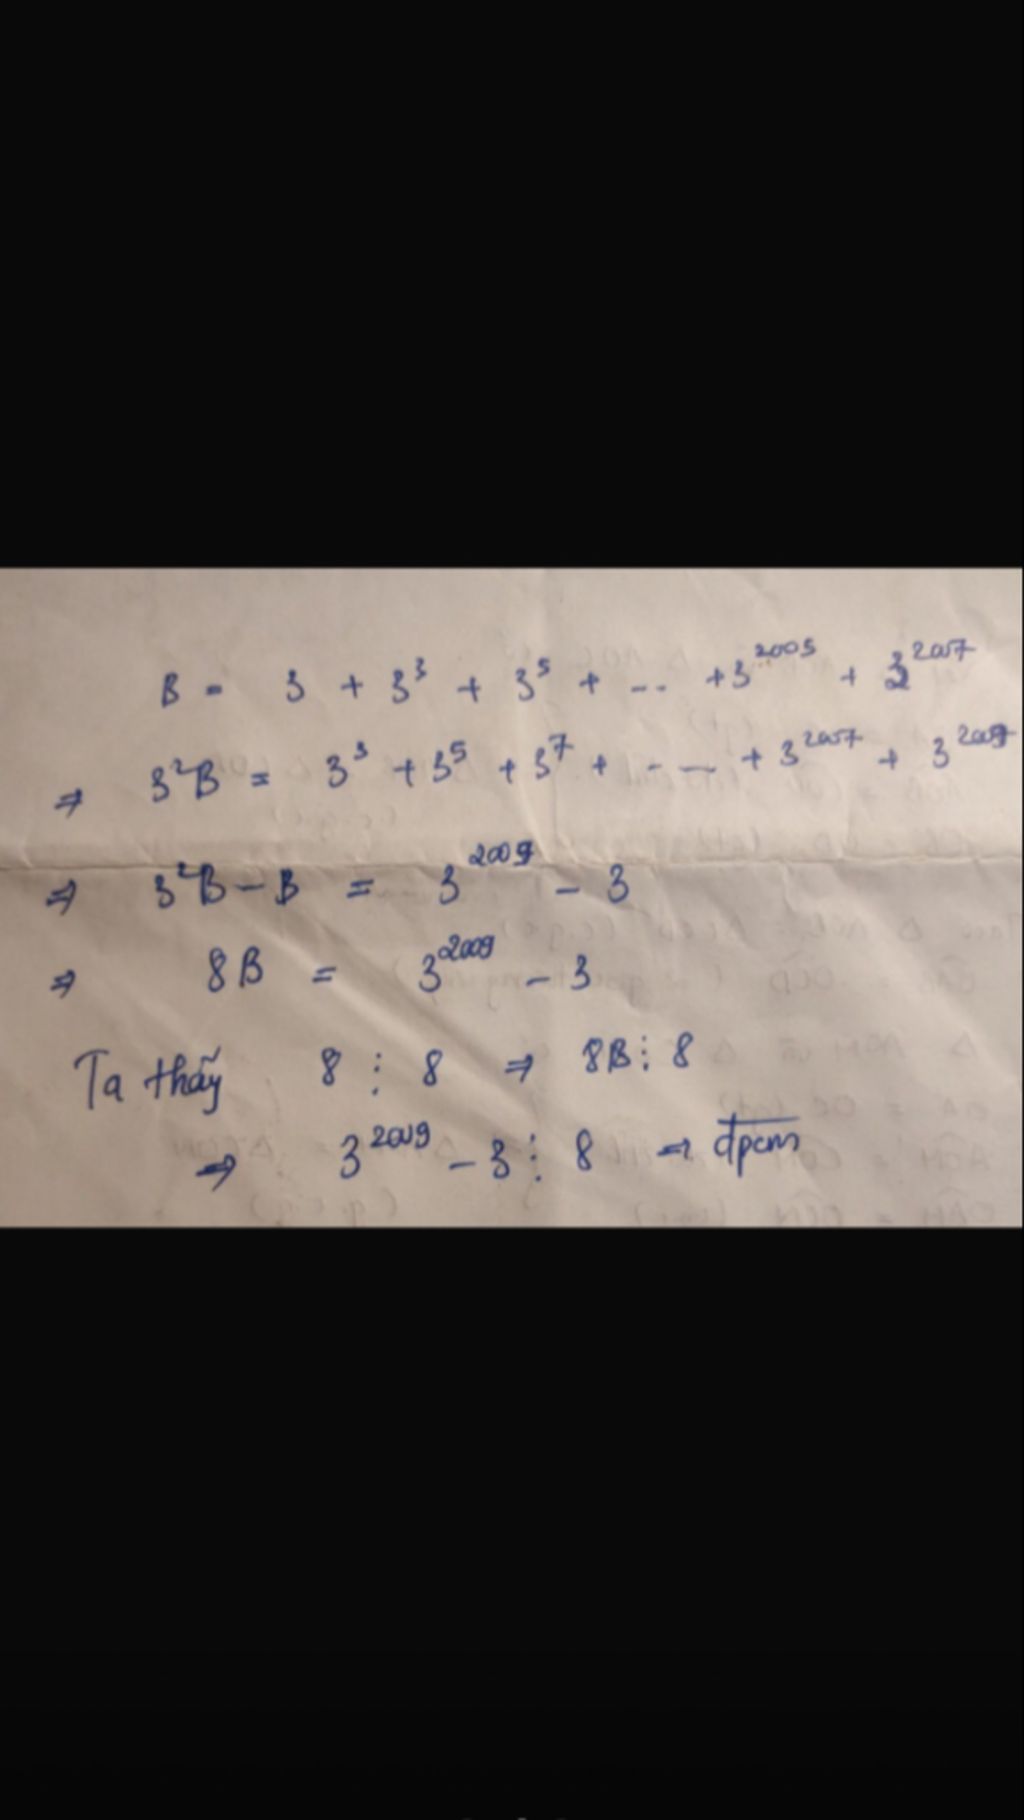 B = 3 + 3³ + 3⁵ + ... + 3²⁰⁰⁵ + 3²⁰⁰⁷
⇒ 3²B = 3³ + 3⁵ + 3⁷ + ... + 3²⁰⁰⁷ + 3²⁰⁰⁹
⇒ 3²B - B = 3²⁰⁰⁹ - 3
⇒ 8B = 3²⁰⁰⁹ - 3
Ta thấy 8 ⋮ 8 ⇒ 8B ⋮ 8
⇒ 3²⁰⁰⁹ - 3 ⋮ 8 ⇒ đpcm